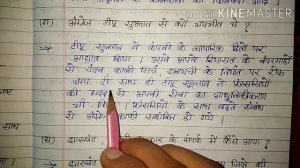 Made with
KINEMASTER
(ग) अंग्रेज टीपू सुल्तान से क्यों भयभीत थे ?
→ टीपू सुल्तान ने कंपनी के व्यापारिक हितों पर
आघात किया । उसने अपने रियासत के बंदरगाहों
से चंदन, काली मिर्च, इलायची के निर्यात पर रोक
लगा दी साथ ही टीपू सुल्तान ने फ्रांसीसियों
की मदद से अपनी सेना का आधुनिकीकरण
की । किया । फ्रांसीसियों के साथ बढ़त संबंध
से अंग्रेज काफी भयभीत हो गये ।
(घ) झारखंड के संपर्क में कैसे आया ?